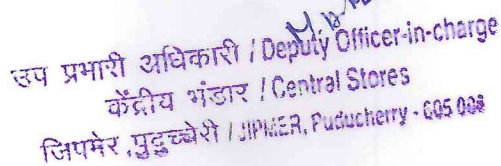 उप प्रभारी अधिकारी / Deputy Officer-in-charge
केंद्रीय भंडार / Central Stores
जिपमेर ,पुदुच्चेरी / JIPMER, Puducherry - 605 006